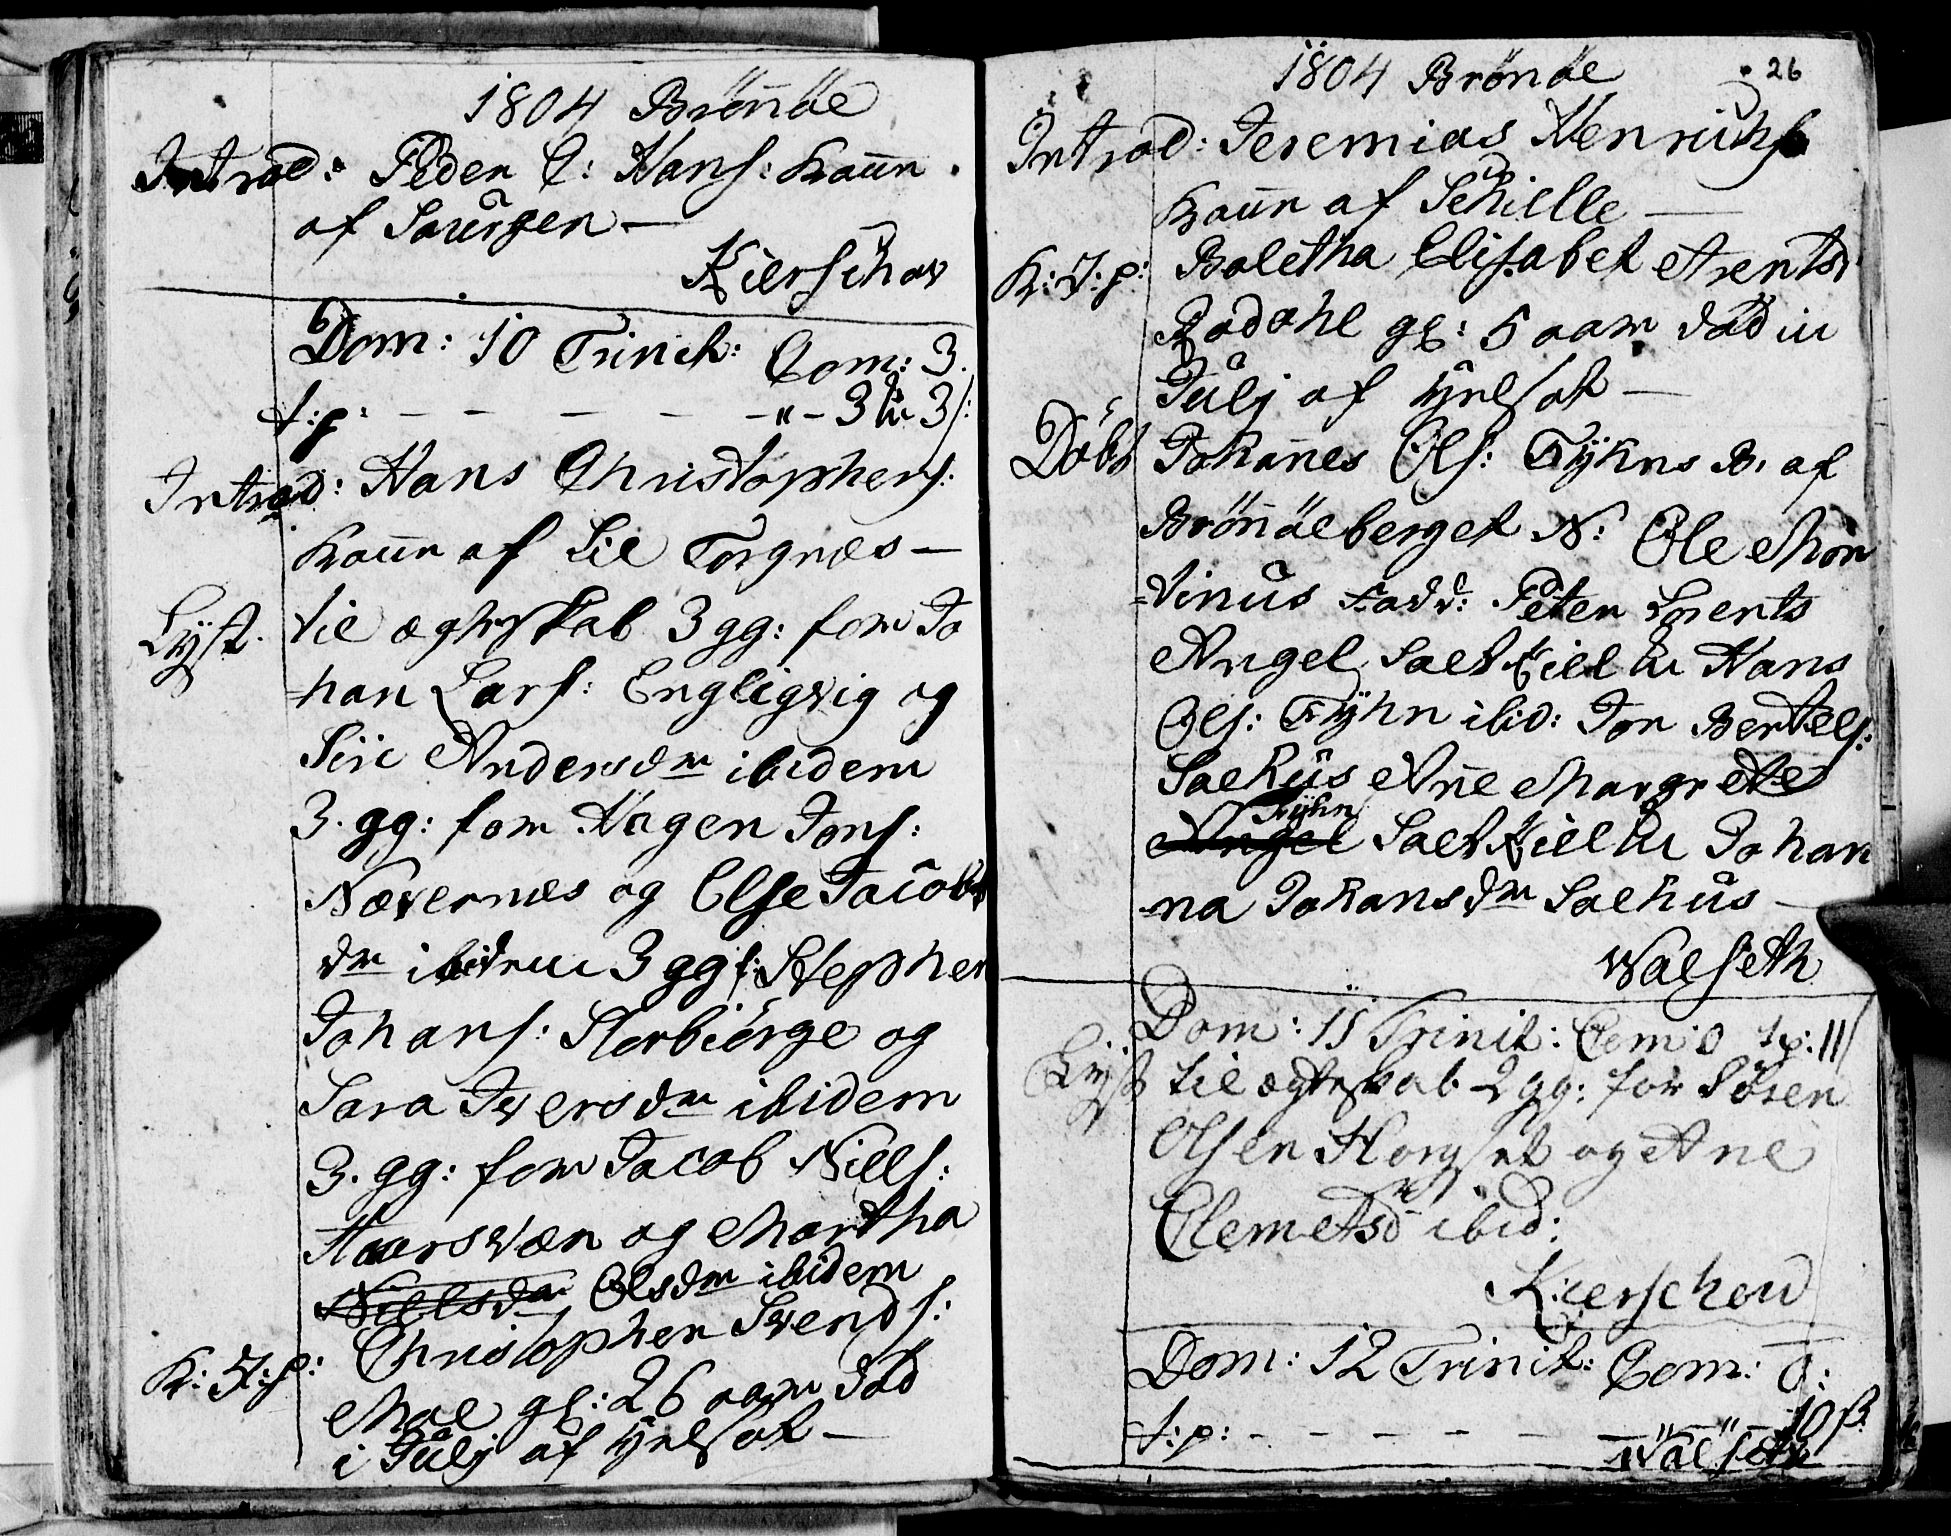 1804 Brönöe
Introd: Peder C: Hans: Kaun
af Saursen —
Kierschow
Dom: 10 Trinit: Com: 3.
t:p: — — — — — " — 3 3 s:
Introd: Hans Christophers:
Kaun af Lil Torgnes —
Lyst. til ægteskab 3 gg: for Jo
han Lars: Engligvig og
Siri Andersdr ibidem
3. gg: for Hagen Jons:
Nævernes og Else Jacobs
dr ibidem 3 gg f: Stephen
Johans: Storbiörge og
Sara Iversdr ibidem
3. gg: for Jacob Niels:
Haarsvæn og Martha
Nielsdr Olsdr ibidem
K: J: p: Christopher Svends:
Moe gl: 26 aar död
i Julj af
1804 Brönöe 26
Introd: Jeremias Henrichs
Kaun af Schille —
K: J: p: Boletha Elisabet Arentsd
Rodahl gl: 5 aar död in
Julj af
Döbt Johannes Ols: Fÿhns B. af
Brönöeberget N: Ole Mor
-tinus Fadd: Peter Lorents
Angel Saltkiel Hans
Ols: Fÿhn ibid: Jon Bertels:
Saehus Anne Margrete
Fÿhn
Angel Saltkiel Johan
na Johansdr Saehus —
Walseth
Dom: 11 Trinit: Com: 0 tp: 11
Lyst til ægteskab 2 gg: for Sören
Olsen Horgset og Ane
Clemetsdr ibid:
Kierschow
Dom: 12 Trinit: Com: 0:
t:p: - - - - - — " — " — 10 ß
Walseth